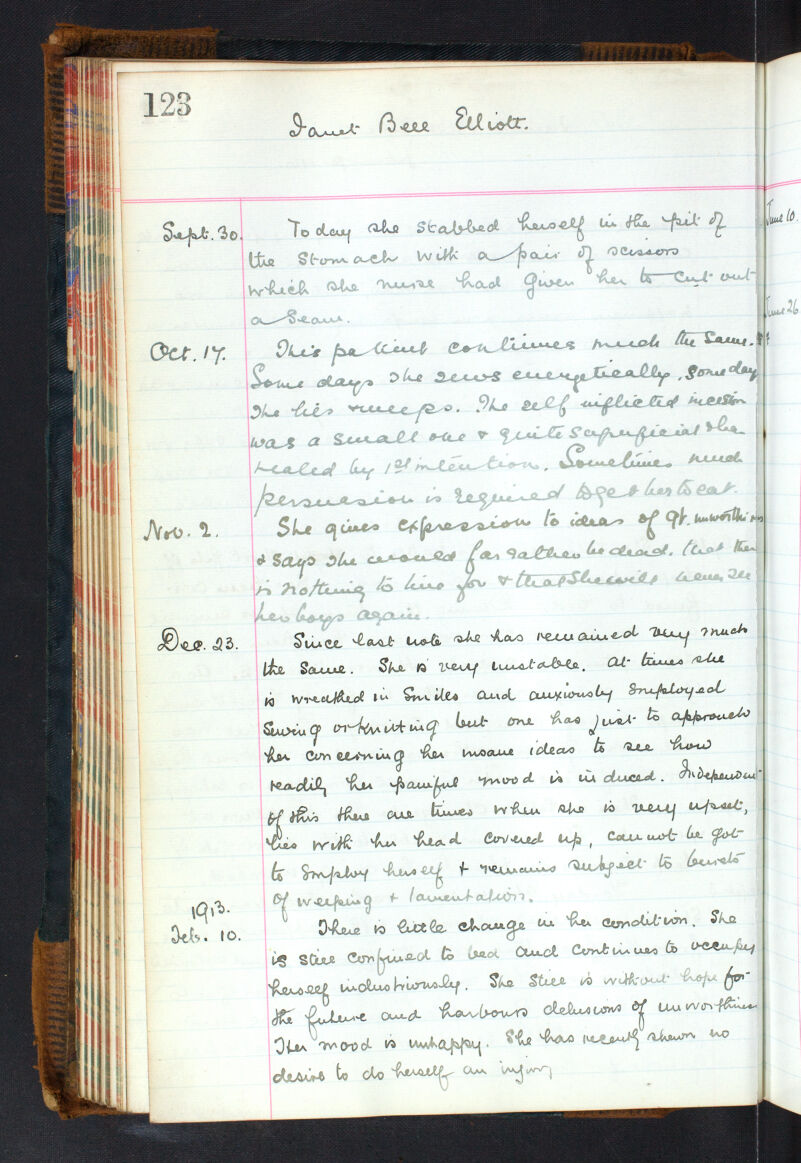 123
Janet Bell Elliott.
Sept. 30. Today she stabbed herself in the pit of
the stomach with a pair of scissors
which she nurse had given her to cut out
a seam.
Oct. 17. This patient continues much the same.
Some days she sews energetically, some day
she lies & weeps. The self inflicted incision
was a small one & quite superficial & has
healed by 1st intention. Sometimes much
persuasion is required to get her to eat.
Nov. 2. She gives expression to ideas of gt. unworthiness
& says she would far rather be dead, that there
is nothing to live for & that she will never see
her boys again.
Dec. 23. Since last note she has remained very much
the same. She is very unstable. At times she
is wreathed in smiles and anxiously employed
sewing or knitting but one has just to approach
her concerning her insane ideas to see how
readily her painful mood is induced. Independent
of this there are times when she is very upset,
lies with her head covered up, cannot be got
to employ herself & remains subject to bursts
of weeping & lamentation.
1913.
Feb. 10. There is little change in her condition. She
is still confined to bed and continues to occupy
herself industriously. She still is without hope for
the future and harbours delusions of unworthiness
Her mood is unhappy. She has recently shewn no
desire to do herself an injury
June 10.
June 26